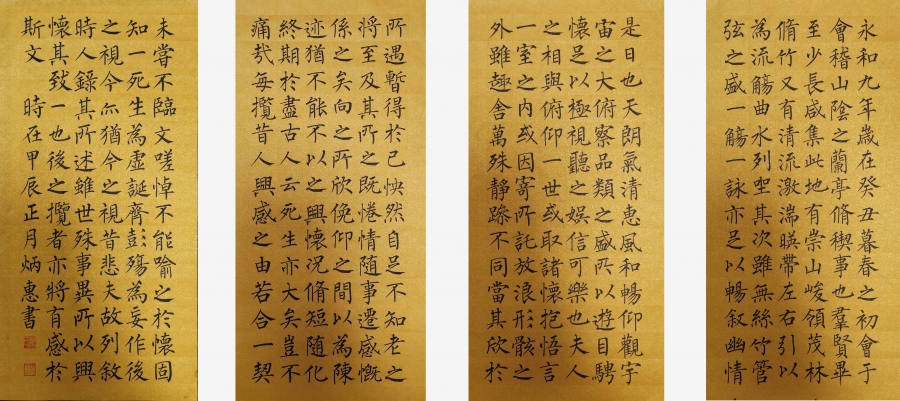 永和九年歲在癸丑暮春之初會于
會稽山陰之蘭亭脩稧事也羣賢畢
至少長咸集此地有崇山峻領茂林
脩竹又有清流激湍暎帶左右引以
為流觴曲水列坐其次雖無絲竹管
弦之盛一觴一詠亦足以暢敘幽情
是日也天朗氣清惠風和暢仰觀宇
宙之大俯察品類之盛所以遊目騁
懷足以極視聽之娛信可樂也夫人
之相與俯仰一世或取諸懷抱悟言
一室之内或因寄所託放浪形骸之
外雖趣舍萬殊靜躁不同當其欣於
所遇暫得於己怏然自足不知老之
將至及其所之既惓情随事遷感慨
係之矣向之所欣俛仰之間以為陳
迹猶不能不以之興懷況脩短随化
終期於盡古人云死生亦大矣豈不
痛哉每攬昔人興感之由若合一契
未嘗不臨文嗟悼不能喻之於懷固
知一死生為虛誕齊彭殤為妄作後
之視今亦猶今之視昔悲夫故列敘
時人錄其所述雖世殊事異所以興
懷其致一也後之攬者亦將有感於
斯文 時在甲辰正月炳惠書